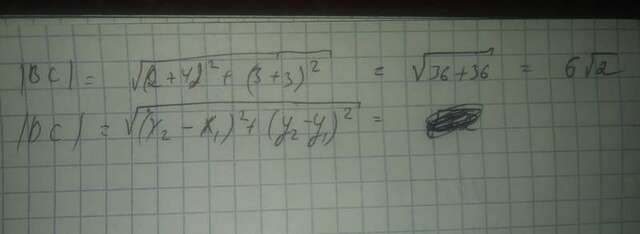 |BC| = √(2+4)² + (3+3)² = √36+36 = 6√2
|DC| = √(x₂ - x₁)² + (y₂ - y₁)² =